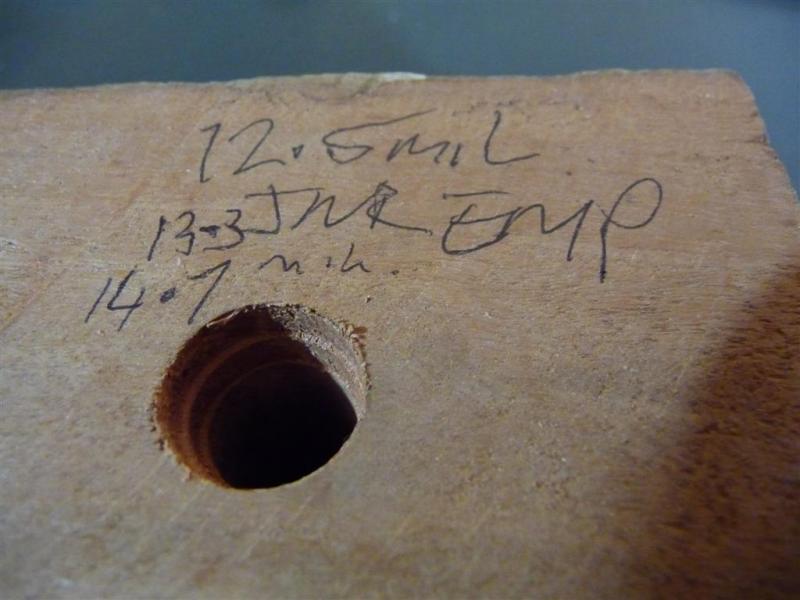 12.5 mil
13.3 JNR EMP
14.7 mil.